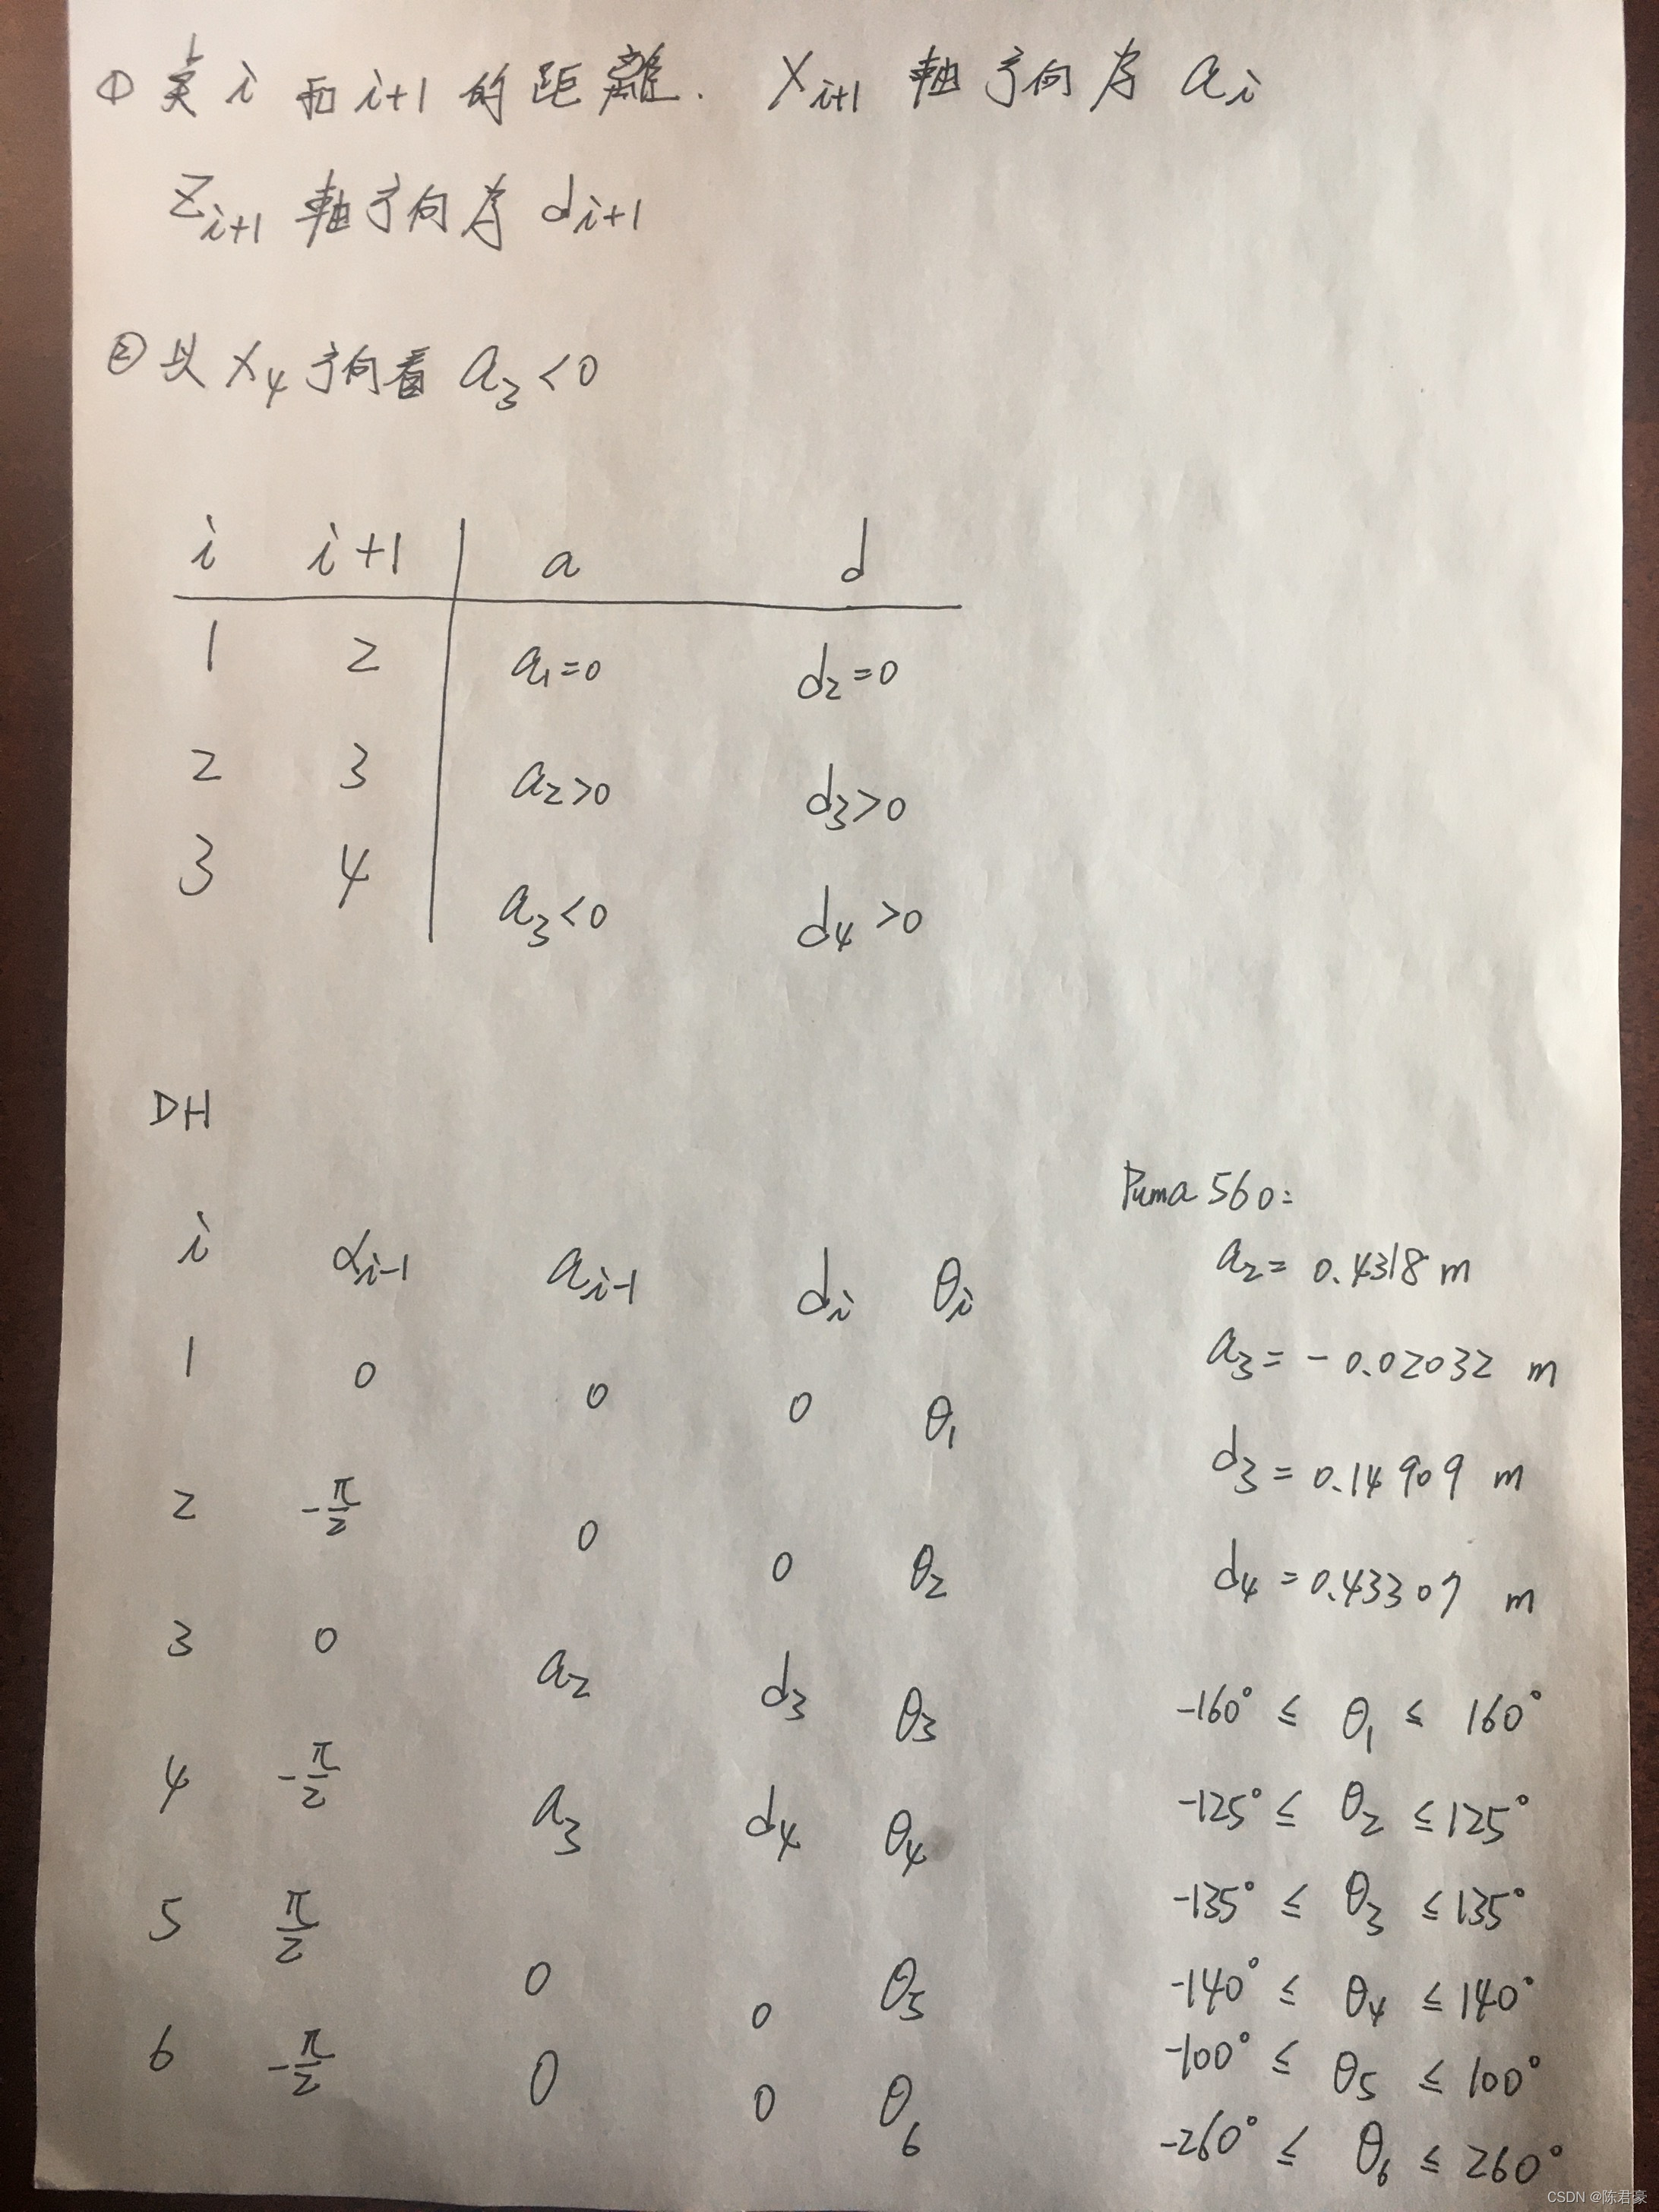 ① 点 i 和 i+1 的距離. X_{i+1} 軸方向为 a_i
Z_{i+1} 軸方向为 d_{i+1}
② 以 X_4 方向看 a_3<0
i i+1 a d
1 2 a_1=0 d_2=0
2 3 a_2>0 d_3>0
3 4 a_3<0 d_4>0
DH
i α_{i-1} a_{i-1} d_i θ_i
1 0 0 0 θ_1
2 -π/2 0 0 θ_2
3 0 a_2 d_3 θ_3
4 -π/2 a_3 d_4 θ_4
5 π/2 0 0 θ_5
6 -π/2 0 0 θ_6
Puma 560:
a_2= 0.4318 m
a_3= -0.02032 m
d_3=0.14909 m
d_4=0.43307 m
-160° ≤ θ_1 ≤ 160°
-125° ≤ θ_2 ≤125°
-135° ≤ θ_3 ≤135°
-140° ≤ θ_4 ≤140°
-100° ≤ θ_5 ≤ 100°
-260° ≤ θ_6 ≤ 260°
CSDN @陈君豪